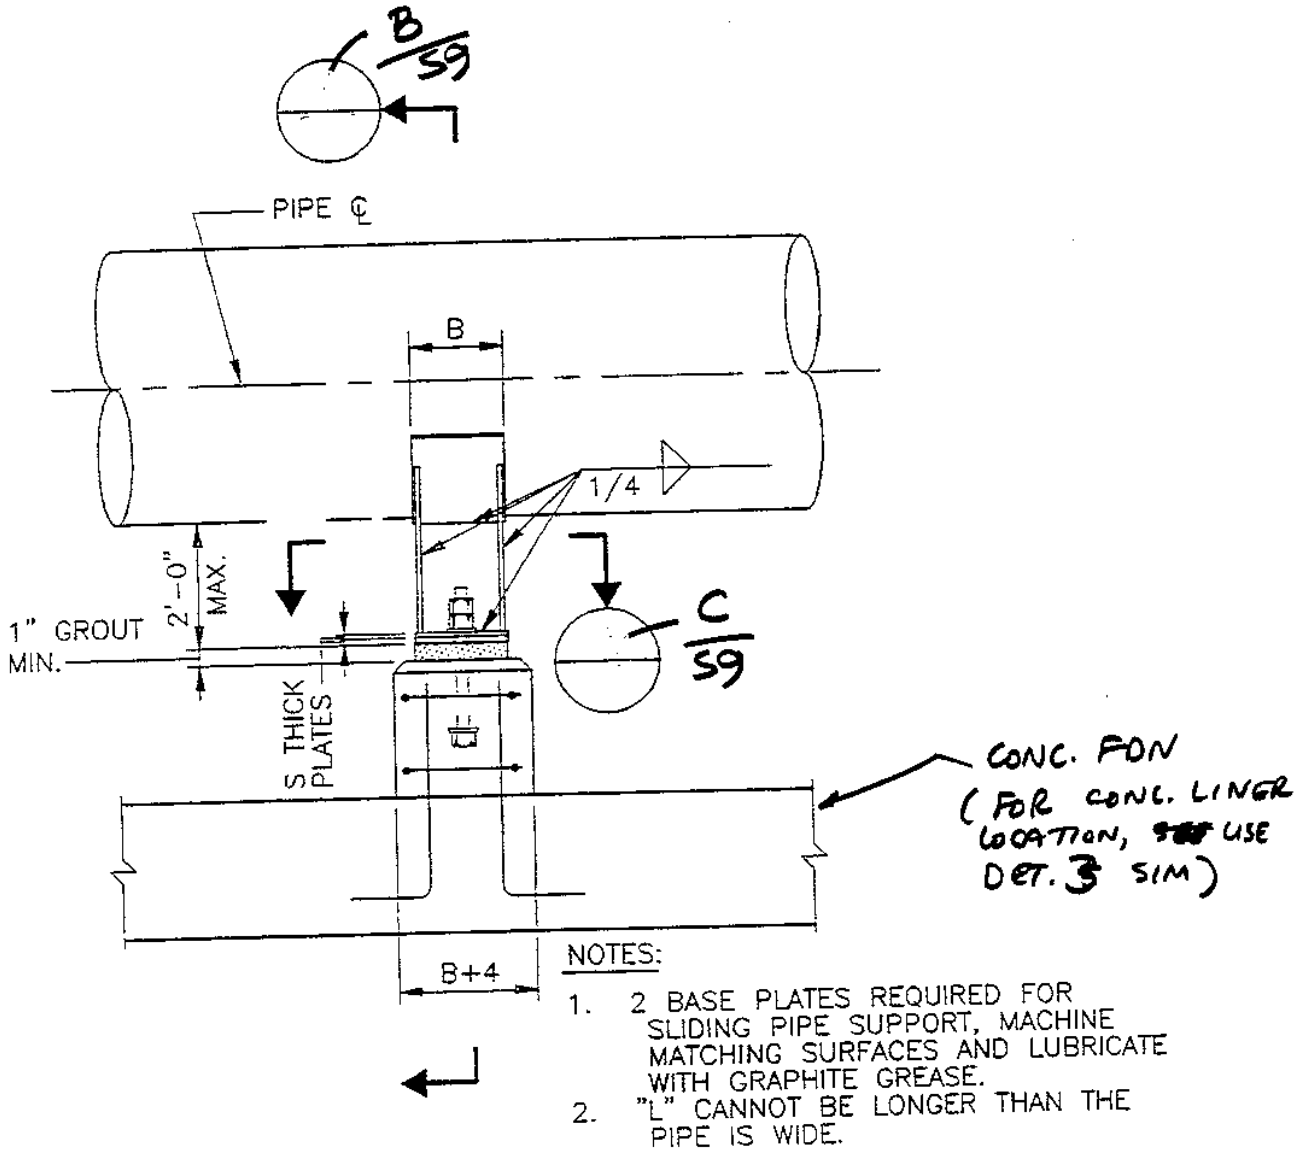 B
S9
PIPE ℄
B
1/4
2'-0"
MAX.
1" GROUT
MIN.
S THICK
PLATES
C
S9
CONC. FDN
(FOR CONC. LINER
LOCATION, USE
DET. 3 SIM)
B+4
NOTES:
1. 2 BASE PLATES REQUIRED FOR
SLIDING PIPE SUPPORT, MACHINE
MATCHING SURFACES AND LUBRICATE
WITH GRAPHITE GREASE.
2. "L" CANNOT BE LONGER THAN THE
PIPE IS WIDE.